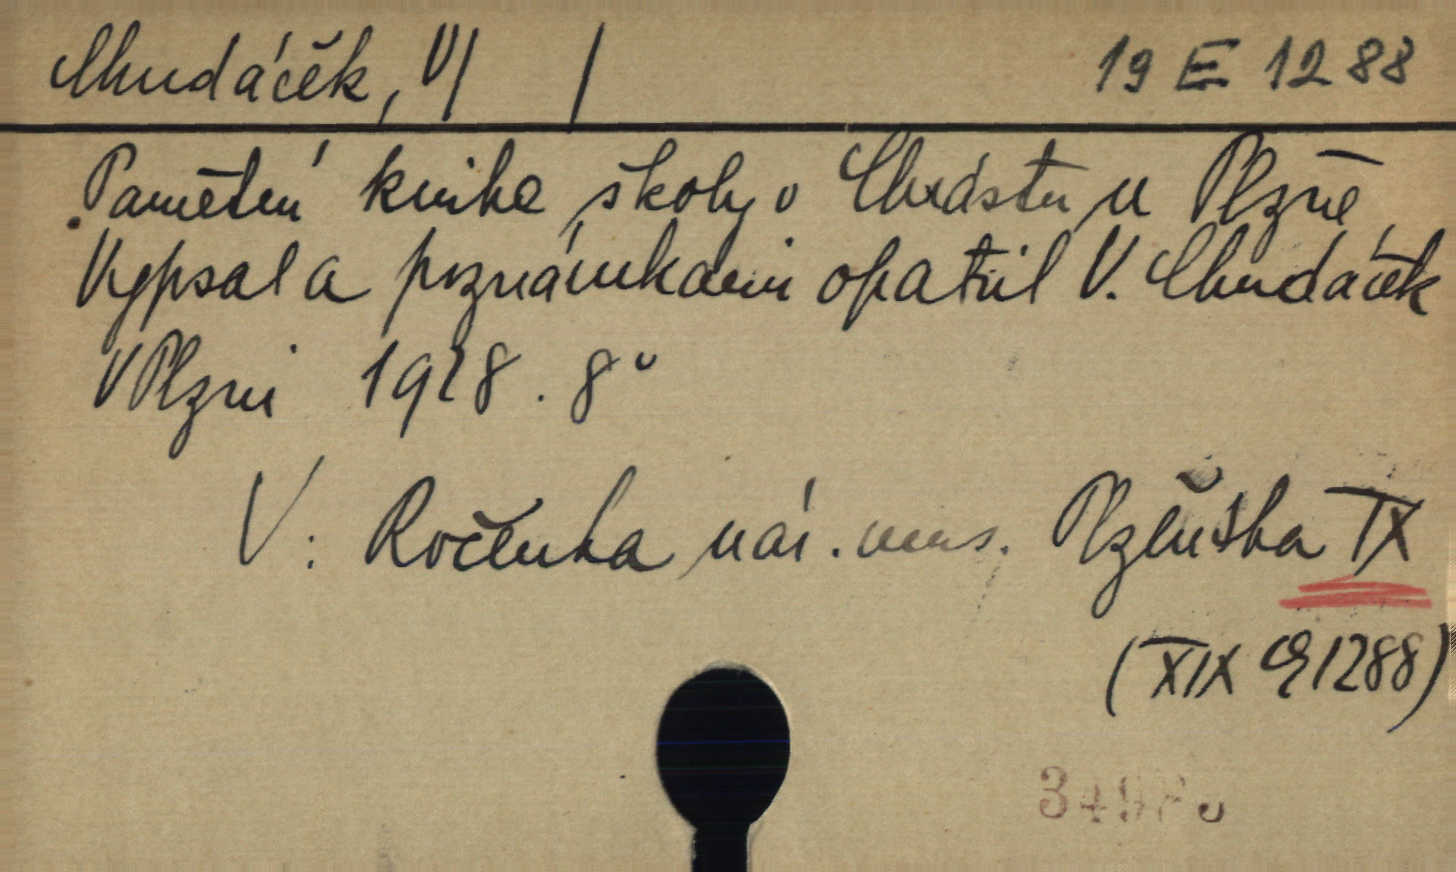 Chudáček, V/ /
19 E 1288
Pamětní kniha školy v Chrástu u Plzně,
Vypsal a poznámkami opatřil V. Chudáček
V Plzni 1928. 8°
V: Ročenka nár. mus. Plzeňska IX
(XIX E 1288)